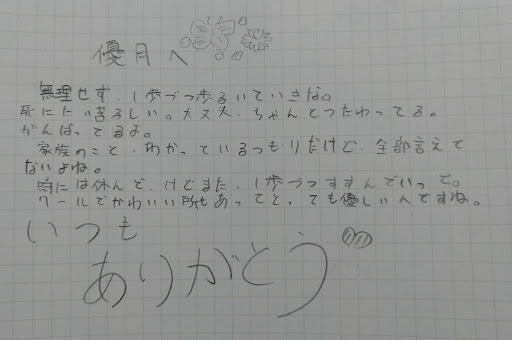 優月へ
無理せず、1歩づつ歩るいていきな。
死にたい苦るしい。大丈夫、ちゃんとつたわってる。
がんばってるよ。
家族のこと、わかっているつもりだけど、全部言えて
ないよね。
時には休んで、けどまた、1歩づつすすんでいって。
クールでかわいい所もあってとっても優しい人ですね。
いつも
ありがとう